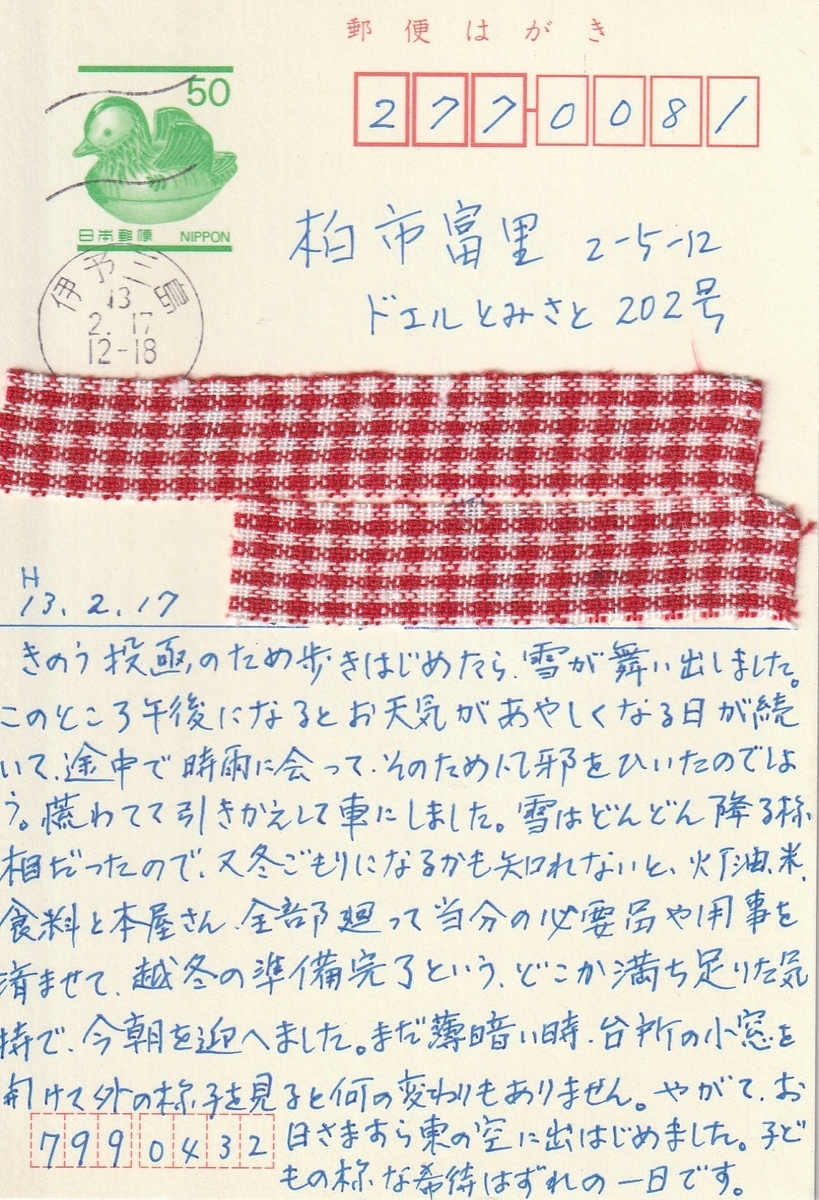 郵便はがき
50
日本郵便 NIPPON
277-0081
伊予三島
13
2.17
12-18
柏市富里 2-5-12
ドエルとみさと 202号
H
13.2.17
きのう投函のため歩きはじめたら、雪が舞い出しました。
このところ午後になるとお天気があやしくなる日が続
いて、途中で時雨に会って、そのために風邪をひいたのでしょ
う。慌わてて引きかえして車にしました。雪はどんどん降る様
相だったので、又冬ごもりになるかも知れないと、灯油、米、
食料と本屋さん、全部廻って当分の必要品や用事を
済ませて、越冬の準備完了という、どこか満ち足りた気
持で、今朝を迎へました。まだ薄暗い時、台所の小窓を
開けて外の様子を見ると何の変わりもありません。やがて、お
日さますら東の空に出はじめました。子ど
もの様な希待はずれの一日です。
7990432